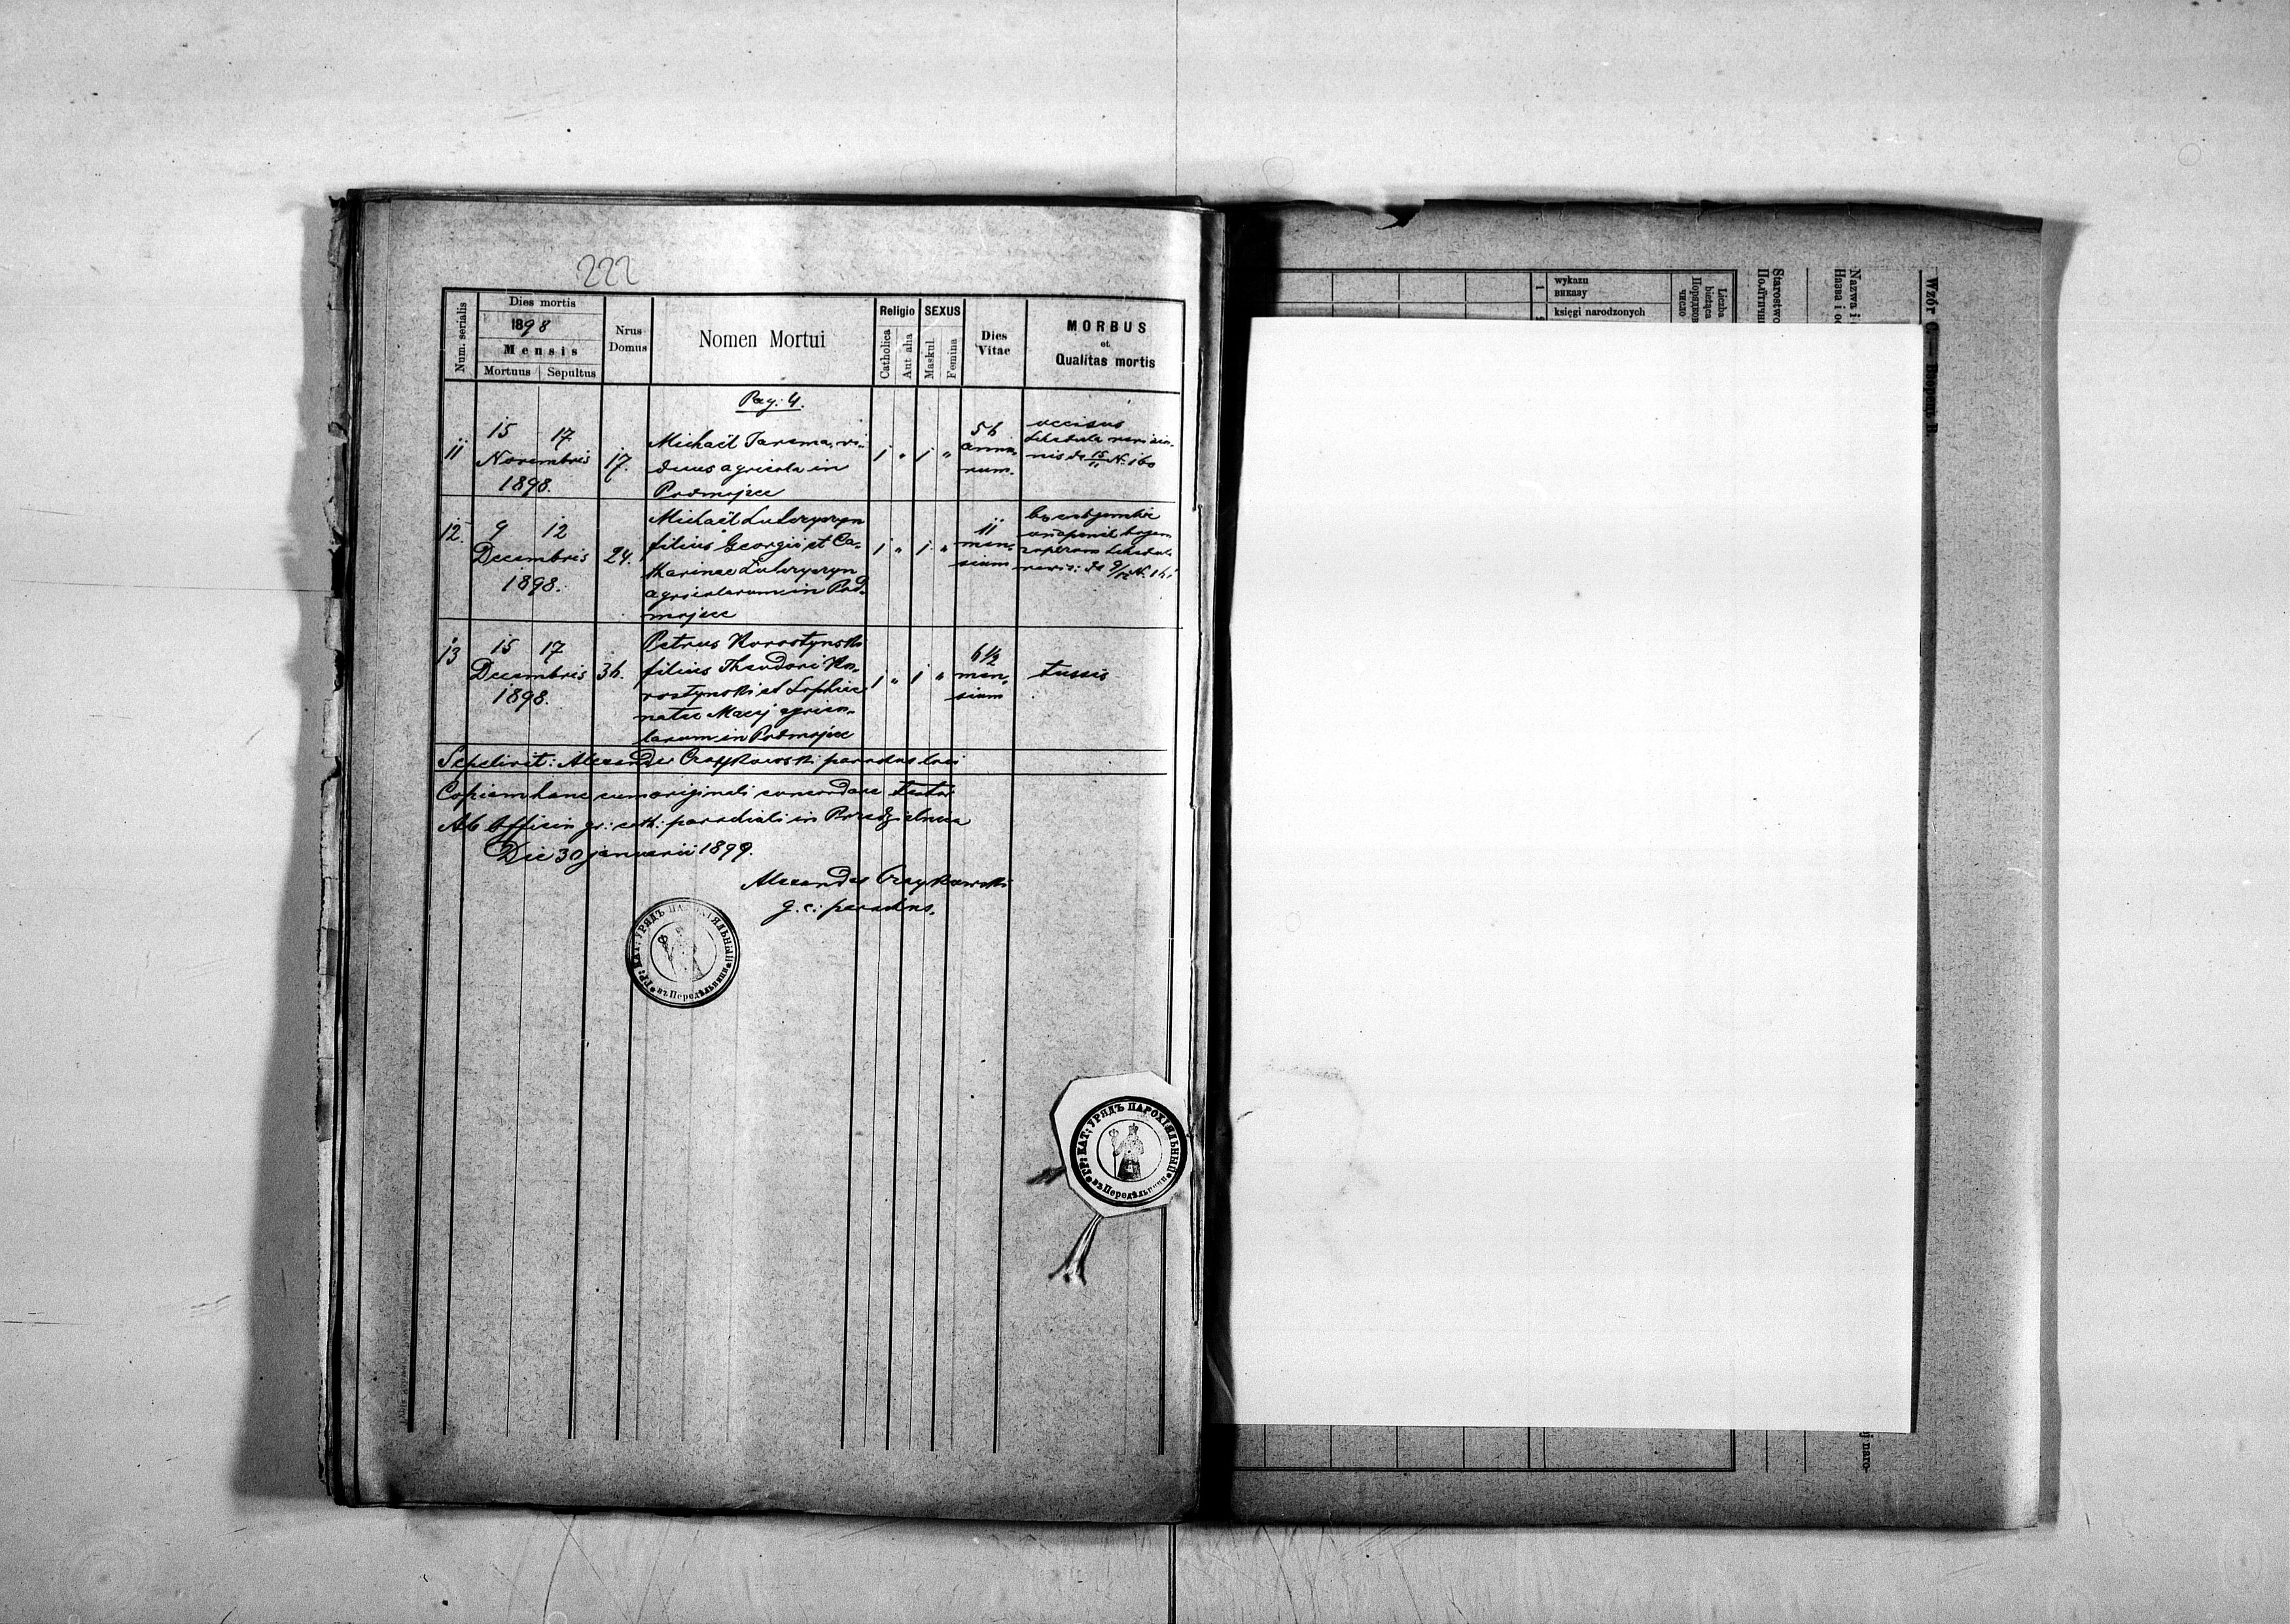 222
Num. serialis
Dies mortis
1898
Mensis
Mortuus
Sepultus
Nrus Domus
Nomen Mortui
Religio
Catholica
Aut alia
SEXUS
Maskul.
Femina
Dies Vitae
MORBUS
et
Qualitas mortis
Pag: 4.
11
15 17
Novembris
1898.
17.
Michaël Tarama, vi-
duus agricola in
Podmojsce
1 " 1 "
56
anno-
rum.
occisus
12.
9 12
Decembris
1898.
24.
Michaël
filius Georgii et Ca-
tharinae
agricolarum in Pod-
mojsce
1 " 1 "
11
men-
sium
13
15 17
Decembris
1898.
36.
Petrus Korostynski
filius Theodori Ko-
rostynski et Sophiae
natae Macij agrico-
larum in Podmojsce
1 " 1 "
6 1/2
men-
sium
tussis
Sepelivit: Alexander Czajkowski parochus loci
Copiam hanc cum originali concordare testor
Ab Officio gr: cath: parochiali in
Die 30 januarii 1899.
Alexander Czajkowski
g. c: parochus.
ГР: КАТ: УРЯДЪ ПАРОХІЯЛЬНЫЙ
въ Передѣльници
ГР: КАТ: УРЯДЪ ПАРОХІЯЛЬНЫЙ
въ Передѣльници
wykazu
виказу
księgi narodzonych
Liczba
bieżąca
число
Starostwo
Nazwa i
Назва і
Wzór C.